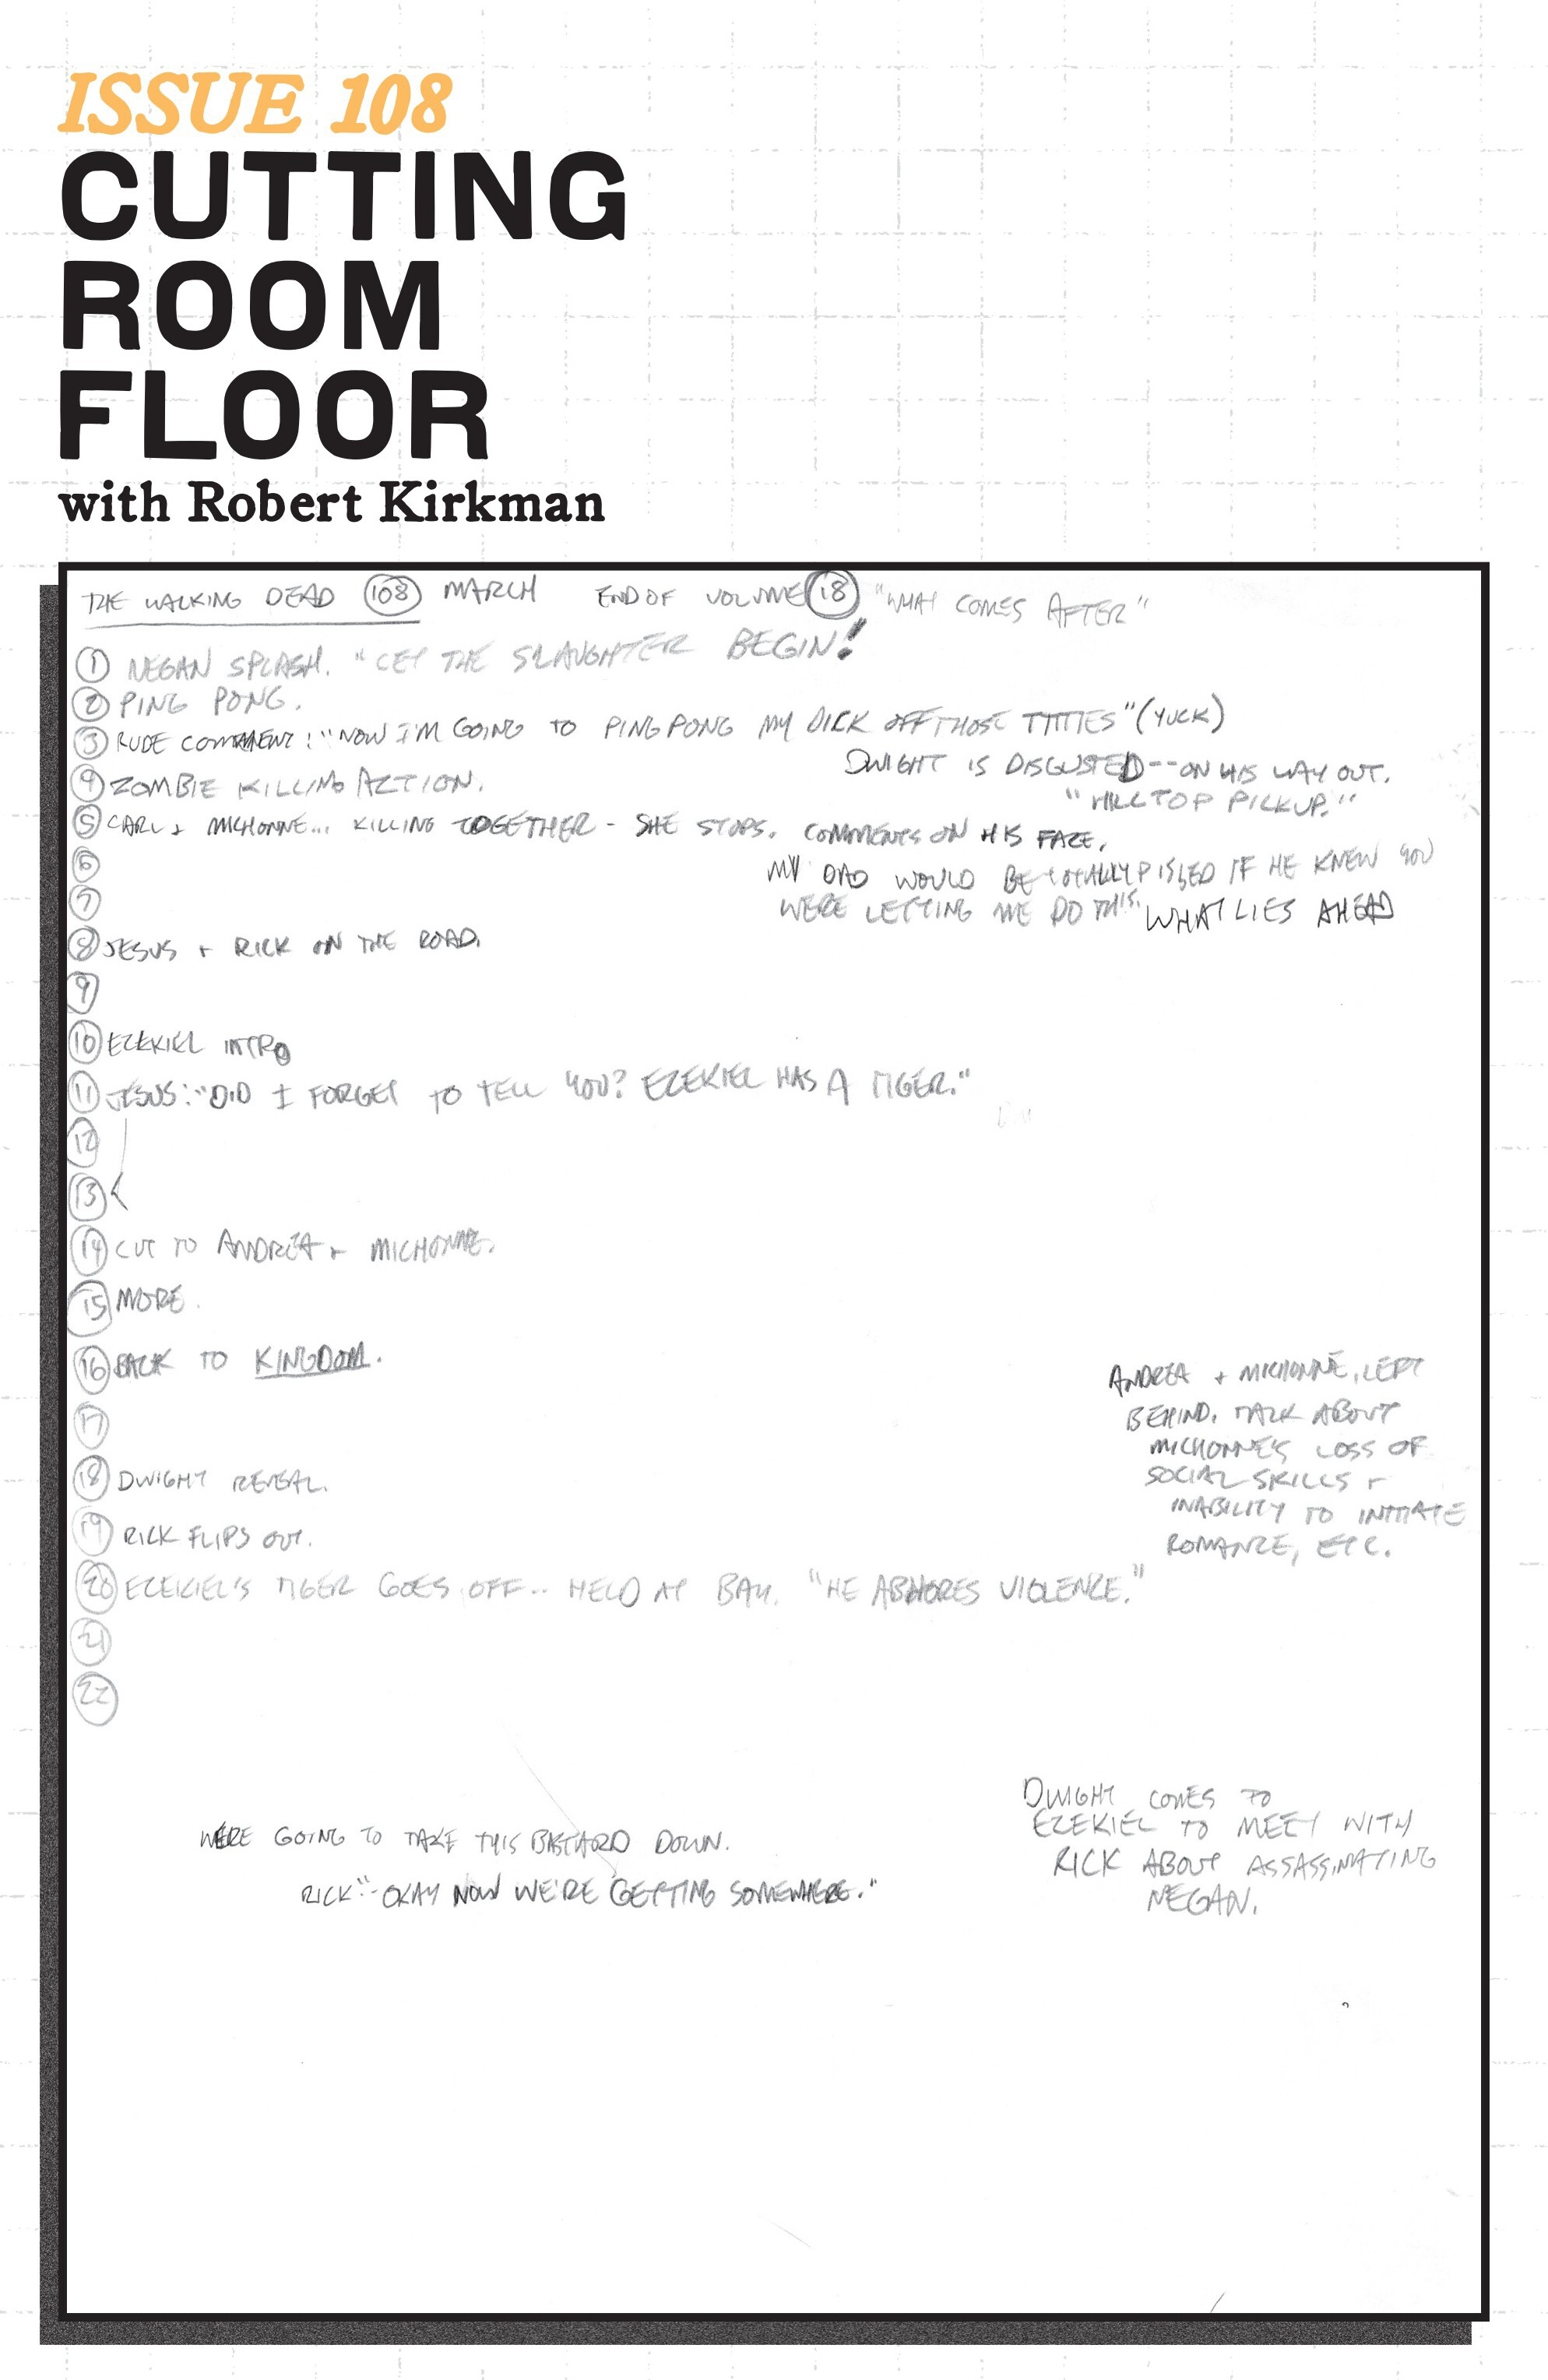 ISSUE 108
CUTTING
ROOM
FLOOR
with Robert Kirkman
THE WALKING DEAD 108 MARCH END OF VOLUME 18 "WHAT COMES AFTER"
1 NEGAN SPLASH. "LET THE SLAUGHTER BEGIN!
2 PING PONG.
3 RUDE COMMENT: "NOW I'M GOING TO PING PONG MY DICK OFF THOSE TITTIES" (YUCK)
DWIGHT IS DISGUSTED--ON HIS WAY OUT.
"HILLTOP PICKUP."
4 ZOMBIE KILLING ACTION.
5 CARL + MICHONNE... KILLING TOGETHER - SHE STOPS. COMMENTS ON HIS FACE.
6
MY DAD WOULD BE TOTALLY PISSED IF HE KNEW YOU
7
WERE LETTING ME DO THIS. WHAT LIES AHEAD
8 JESUS + RICK ON THE ROAD.
9
10 EZEKIEL INTRO
11 JESUS: "DID I FORGET TO TELL YOU? EZEKIEL HAS A TIGER."
12
13
14 CUT TO ANDREA + MICHONNE.
15 MORE.
16 BACK TO KINGDOM.
17
18 DWIGHT REVEAL.
19 RICK FLIPS OUT.
20 EZEKIEL'S TIGER GOES OFF.. HELD AT BAY. "HE ABHORES VIOLENCE."
21
22
ANDREA + MICHONNE, LEFT
BEHIND. TALK ABOUT
MICHONNE'S LOSS OF
SOCIAL SKILLS +
INABILITY TO INITIATE
ROMANCE, ETC.
WERE GOING TO TAKE THIS BASTARD DOWN.
RICK: "OKAY NOW WE'RE GETTING SOMEWHERE."
DWIGHT COMES TO
EZEKIEL TO MEET WITH
RICK ABOUT ASSASSINATING
NEGAN.